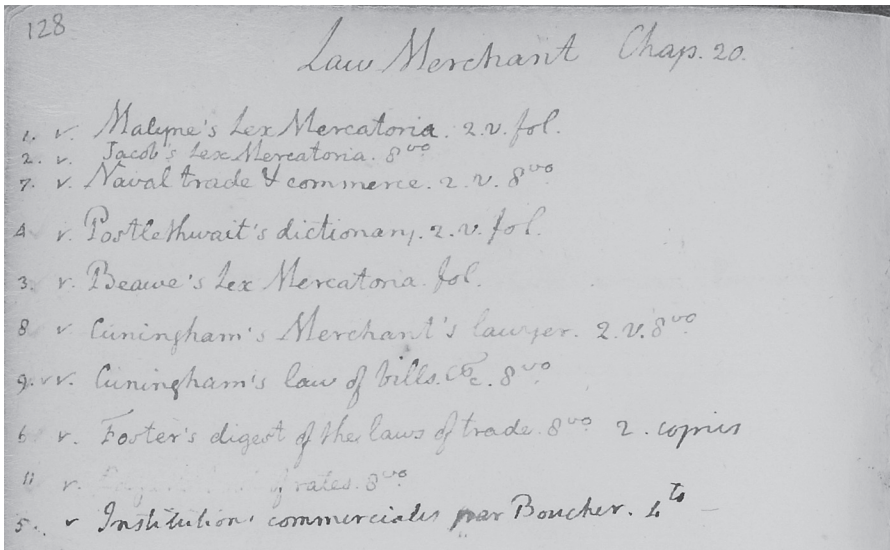 128
Law Merchant Chap. 20.
1. v. Malyne's Lex Mercatoria. 2. v. fol.
2. v. Jacob's Lex Mercatoria. 8vo
7. v. Naval trade & commerce. 2. v. 8vo
4 v. Postlethwait's dictionary. 2. v. fol.
3. v. Beawe's Lex Mercatoria. fol.
8 v Cuningham's Merchant's lawyer. 2. v. 8vo
9. v v. Cuningham's law of bills. &c. 8vo
6 v. Foster's digest of the laws of trade. 8vo 2. copies
11 v. of rates. 8vo
5. v Institution commerciales par Boucher. 4to